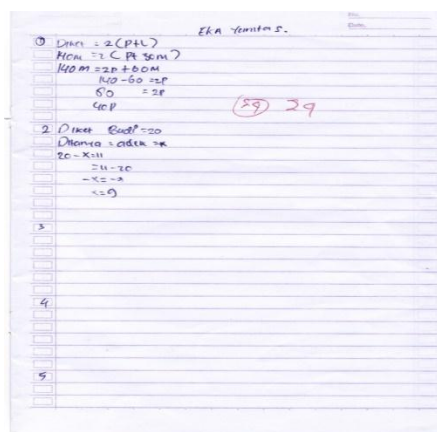 EKA Yunita S.
① Diket = 2(P+L)
140m = 2(P+30m)
140m = 2p + 60m
140-60 = 2p
80 = 2p
40p
29 29
2 Diket Budi = 20
Ditanya = adik = x
20 - x = 11
= 11 - 20
- x = - 9
x = 9
3
4
5